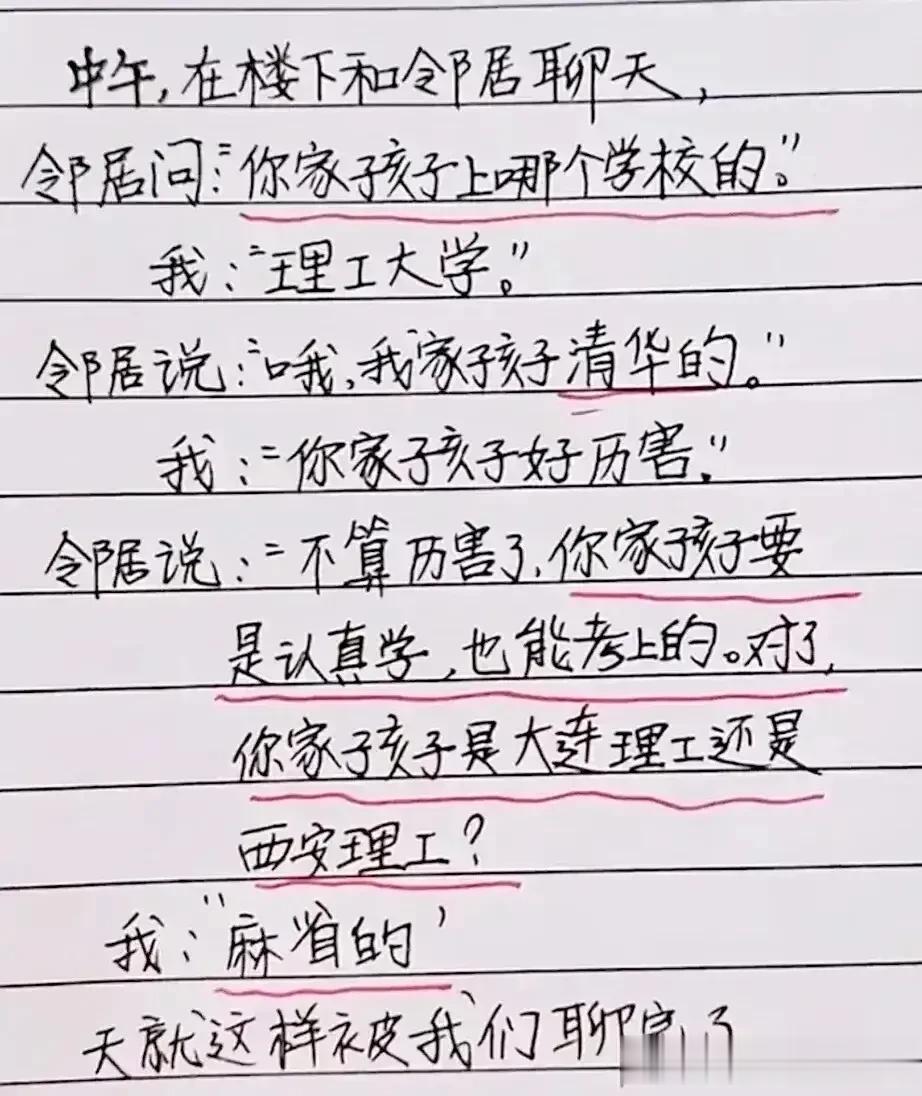 中午,在楼下和邻居聊天,
邻居问:"你家孩子上哪个学校的。"
我:"理工大学。"
邻居说:"哦,我家孩子清华的。"
我:"你家孩子好历害."
邻居说:"不算历害了,你家孩子要
是认真学,也能考上的。对了,
你家孩子是大连理工还是
西安理工?
我:"麻省的"
天就这样被我们聊了